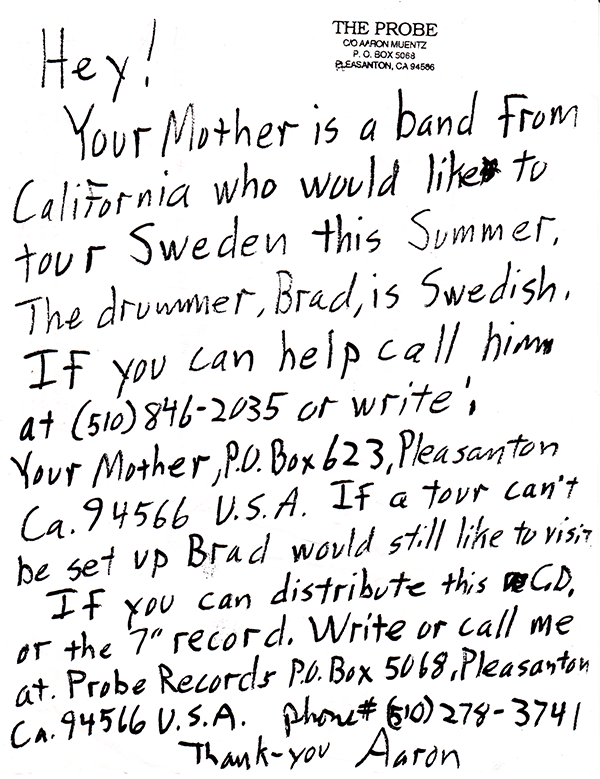 THE PROBE
C/O AARON MUENTZ
P. O. BOX 5068
PLEASANTON, CA 94566
Hey!
Your Mother is a band from
California who would like to
tour Sweden this Summer.
The drummer, Brad, is Swedish.
If you can help call him
at (510) 846-2035 or write:
Your Mother, P.O. Box 623, Pleasanton
Ca. 94566 U.S.A. If a tour can't
be set up Brad would still like to visit
If you can distribute this C.D.
or the 7" record. Write or call me
at. Probe Records P.O. Box 5068, Pleasanton
Ca. 94566 U.S.A. phone# (510) 278-3741
Thank-you Aaron